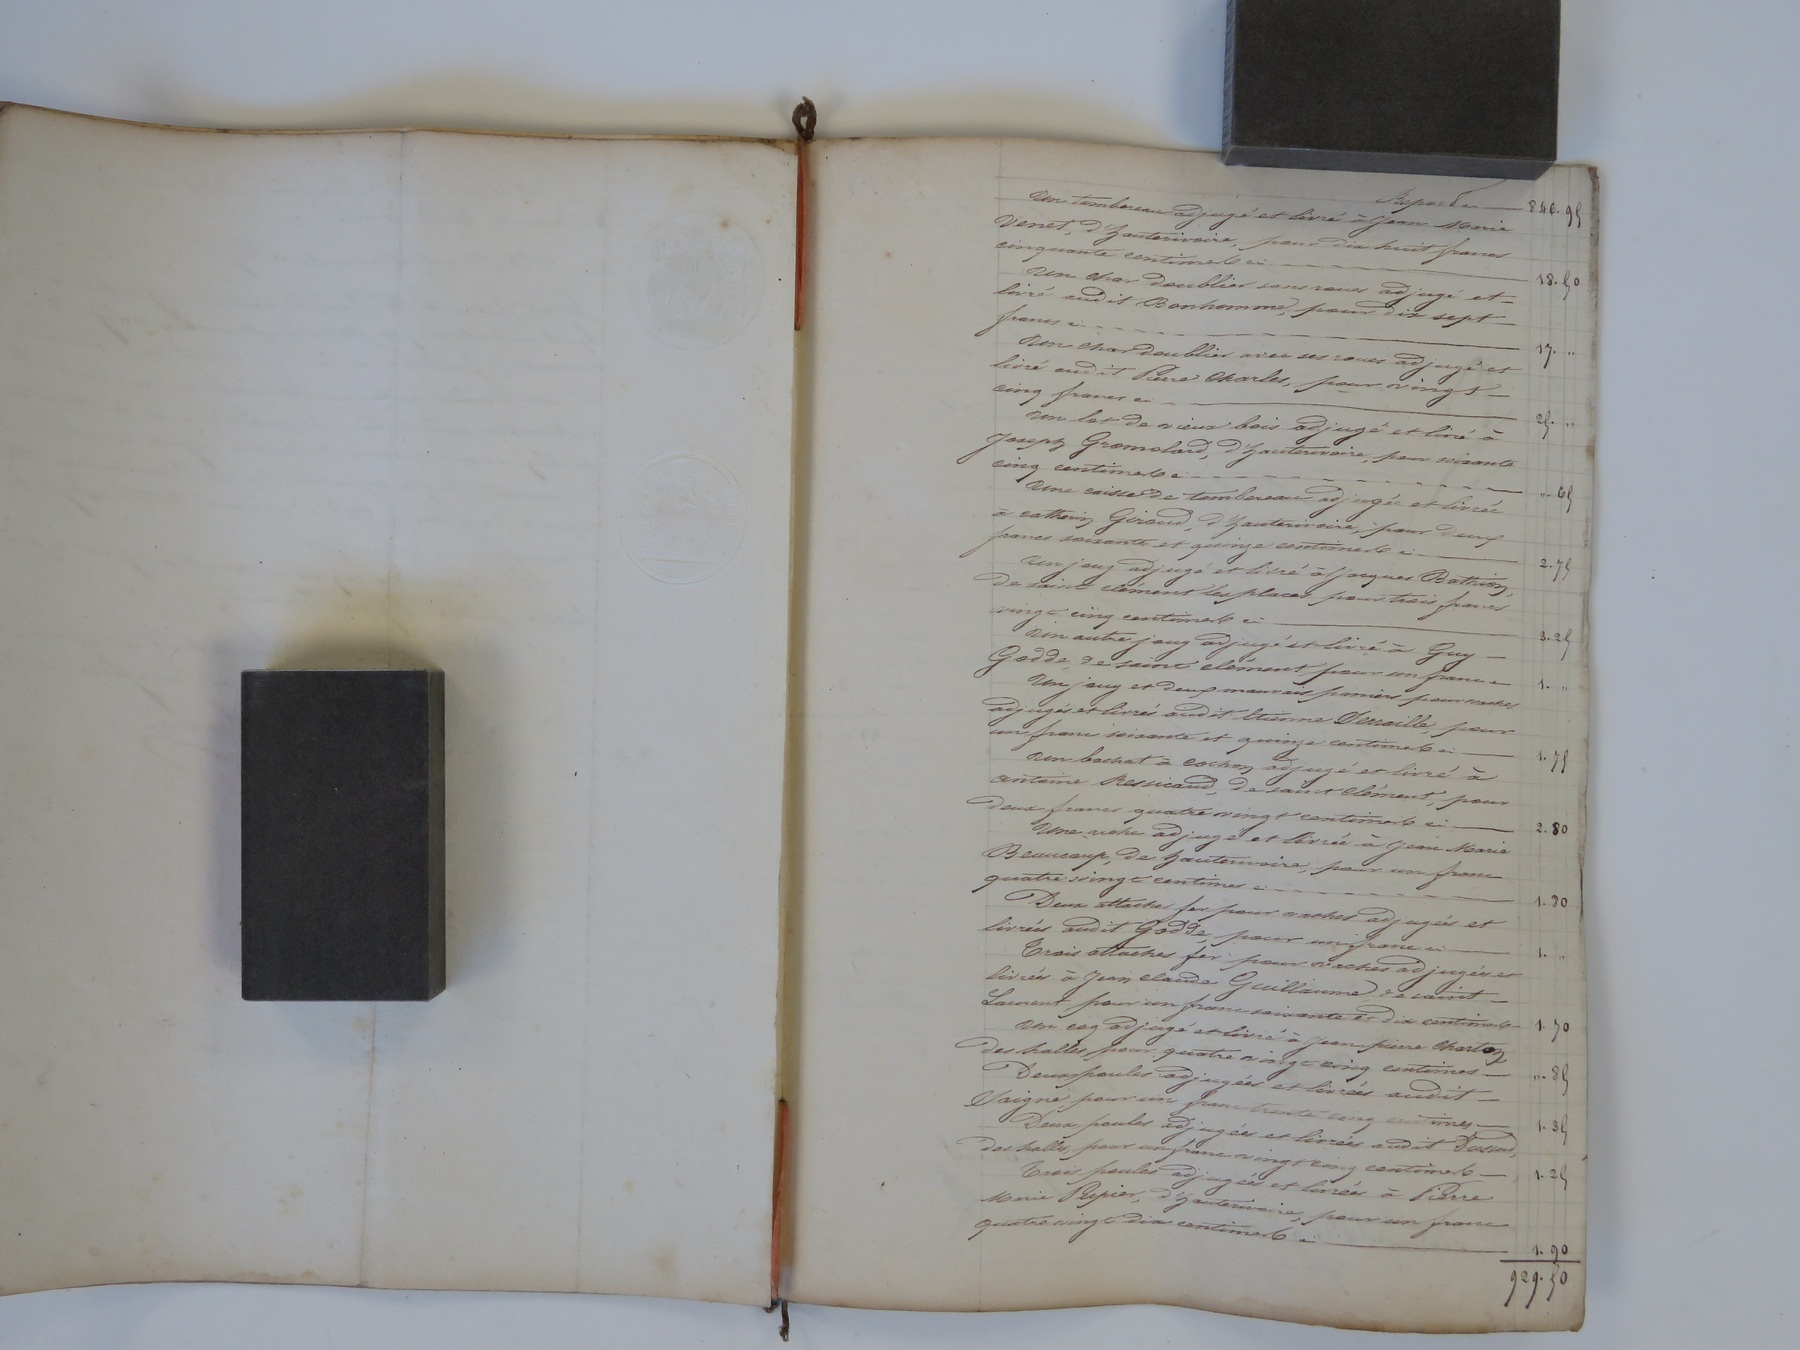 Report ci 846.95
Un tombereau adjugé et livré à Jean Marie
Venet, d'hauterivoire, pour dix huit francs
cinquante centimes ci 18.50
Un char doublier sans roues adjugé et
livré audit Bonhomme, pour dix sept
francs ci 17. "
Un char doublier avec ses roues adjugé et
livré audit Pierre Charles, pour vingt
cinq francs ci 25. "
Un lot de vieux bois adjugé et livré à
Joseph Gromolard, d'hauterivoire, pour soixante
cinq centimes ci ". 65
Une caisse de tombereau adjugée et livrée
à cathrin Giroud, d'hauterivoire, pour deux
francs soixante et quinze centimes ci 2.75
Un joug adjugé et livré à Jacques Bathion,
de saint clement les places pour trois francs
vingt cinq centimes ci 3.25
Un autre joug adjugé et livré à Guy
Godde, de saint clément, pour un franc ci 1. "
Un joug et deux mauvais paniers pour vaches
adjugés et livrés audit Etienne, pour
un franc soixante et quinze centimes ci 1.75
Un bachat à cochon adjugé et livré à
antoine Ressicaud, de saint Clément, pour
deux francs quatre vingt centimes ci 2.80
Une arche adjugé et livrée à Jean Marie
Beaucoup, de hauterivoire, pour un franc
quatre vingt centimes ci 1.80
Deux attaches fer pour vaches adjugés et
livrées audit Godde, pour un franc ci 1. "
Trois attaches fer pour vaches adjugées et
livrées à Jean claude Guillaume, de saint
Laurent pour un franc soixante et dix centimes 1.70
Un coq adjugé et livré à Jean pierre Charton
des halles, pour quatre vingt cinq centimes ". 85
Deux poules adjugées et livrées audit
Saigne pour un franc trente cinq centimes 1.35
Deux poules adjugées et livrées audit
des halles, pour un franc vingt cinq centimes 1.25
Trois poules adjugées et livrées à Pierre
Marie Pupier, d'hauterivoire, pour un franc
quatre vingt dix centimes ci 1.90
929.50